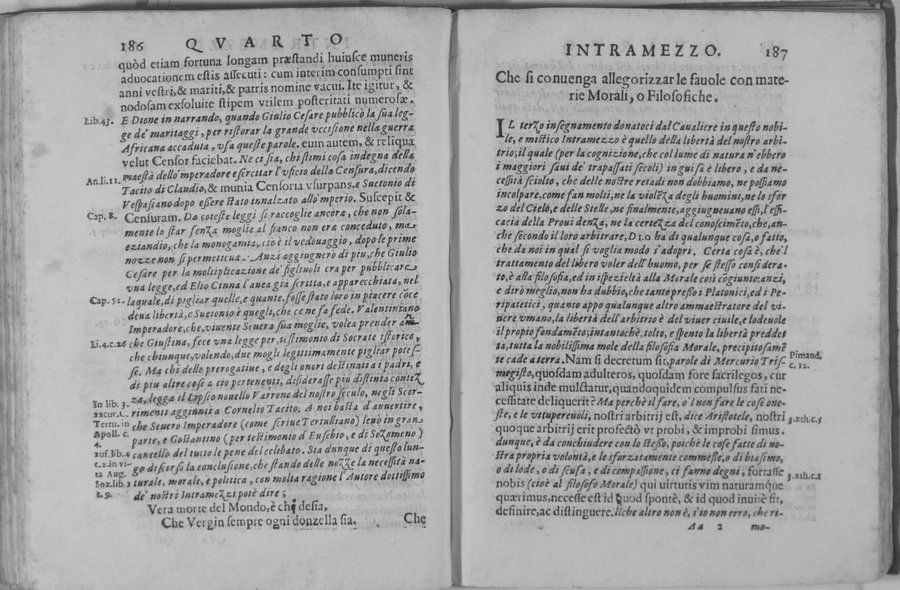 186 QVARTO
quòd etiam fortuna longam præstandi huiusce muneris
aduocationem estis assecuti: cum interim consumpti sint
anni vestri, & mariti, & patris nomine vacui. Ite igitur, &
nodosam exsoluite stipem vtilem posteritati numerosæ.
Lib. 43. E Dione in narrando, quando Giulio Cesare pubblicò la sua leg-
ge de' maritaggi, per ristorar la grande vccisione nella guerra
Africana accaduta, vsa queste parole. eum autem, & reliqua
velut Censor faciebat. Ne ci sia, chi stimi cosa indegna della
maestà dello'mperadore esercitar l'vficio della Censura, dicendo
An. li. 11. Tacito di Claudio, & munia Censoria vsurpans, e Suetonio di
Vespasiano dopo essere stato innalzato allo'mperio. Suscepit &
Cap. 8. Censuram. Da coteste leggi si raccoglie ancora, che non sola-
mente lo star senza moglie al fianco non era conceduto, ma
eziandio, che la monogamia, cio è il vedouaggio, dopo le prime
nozze non si permetteua. Anzi aggiugnerò di piu, che Giulio
Cesare per la moltiplicazione de' figliuoli era per pubblicare
vna legge, ed Elio Cinna l'auea già scritta, e apparecchiata, nel
Cap. 52. laquale, di pigliar quelle, e quante, fosse stato loro in piacere cōce
deua libertà, e Suetonio è quegli, che ce ne fa fede. Valentiniano
Imperadore, che, viuente Seuera sua moglie, volea prender an-
Li. 4. c. 26 che Giustina, fece vna legge per testimonio di Socrate istorico,
che chiunque, volendo, due mogli legittimamente pigliar potes-
se. Ma chi delle prerogatiue, e degli onori destinati a' padri, e
di piu altre cose a ciò pertenenti, disiderasse piu distinta contez
za, legga il Lipsio nouello Varrone del nostro secolo, negli Scor-
In lib. 3.
excur. C. rimenti aggiunti a Cornelio Tacito. A noi basta d'auuertire,
Tertu. in che Seuero Imperadore (come scriue Tertulliano) leuò in gran
Apoll. c.
4. parte, e Gostantino (per testimonio d'Eusebio, e di Sozomeno)
euf. lib. 4 cancello del tutto le pene del celibato. Sia dunque di questo lun-
c. 2. in vi
ta Aug. go discorso la conclusione, che stando delle nozze la necessità na-
Soz. lib. 1 turale, morale, e politica, con molta ragione l'Autore dottissimo
c. 9. de' nostri Intramezzi potè dire;
Vera morte del Mondo, è chi desia,
Che Vergin sempre ogni donzella sia.
Che
INTRAMEZZO. 187
Che si conuenga allegorizzar le fauole con mate-
rie Morali, o Filosofiche.
IL terzo insegnamento donatoci dal Caualiere in questo nobi-
le, e mistico Intramezzo è quello della libertà del nostro arbi-
trio; il quale (per la cognizione, che col lume di natura n'ebbero
i maggiori saui de' trapassati secoli) in guisa è libero, e da ne-
cessità sciolto, che delle nostre retadi non dobbiamo, ne possiamo
incolpare, come fan molti, ne la violēza degli huomini, ne lo sfor
zo del Cielo, e delle Stelle, ne finalmente, aggiugneuano essi, l'effi-
cacia della Prouidenza, ne la certezza del conoscimēto, che, an-
che secondo il loro arbitrare, DIO ha di qualunque cosa, o fatto,
che da noi in qual si voglia modo s'adopri. Certa cosa è, che'l
trattamento del libero voler dell'huomo, per sè stesso considera-
to, è alla filosofia, ed in ispezieltà alla Morale così cōgiunto: anzi,
e dirò meglio, non ha dubbio, che tanto presso i Platonici, ed i Pe-
ripatetici, quanto appo qualunque altro ammaestratore del vi-
uere vmano, la libertà dell'arbitrio è del viuer ciuile, e lodeuole
il propio fondamēto; intantochè, tolto, e spento la libertà preddet
ta, tutta la nobilissima mole della filosofia Morale, precipitosamē
te cade a terra. Nam si decretum sit, parole di Mercurio Tris-
Pimand.
c. 12.
megisto, quosdam adulteros, quosdam fore sacrilegos, cur
aliquis inde mulctatur, quandoquidem compulsus fati ne-
cessitate deliquerit? Ma perchè il fare, o'l non fare le cose one-
ste, e le vitupereuoli, nostri arbitrij est, dice Aristotele, nostri 3. eth. c. 5
quoque arbitrij erit profectò vt probi, & improbi simus.
dunque, è da conchiudere con lo stesso, poichè le cose fatte di no-
stra propria volontà, e le sforzatamente commesse, o di biasimo,
o di lode, o di scusa, e di compassione, ci fanno degni, fortasse
nobis (cioè al filosofo Morale) qui uirtutis vim naturamque 3. eth. c. 1
quærimus, necesse est id quod spontè, & id quod inuitè sit,
definire, ac distinguere. Ilche altro non è, s'io non erro, che ri-
Aa 2 mo-